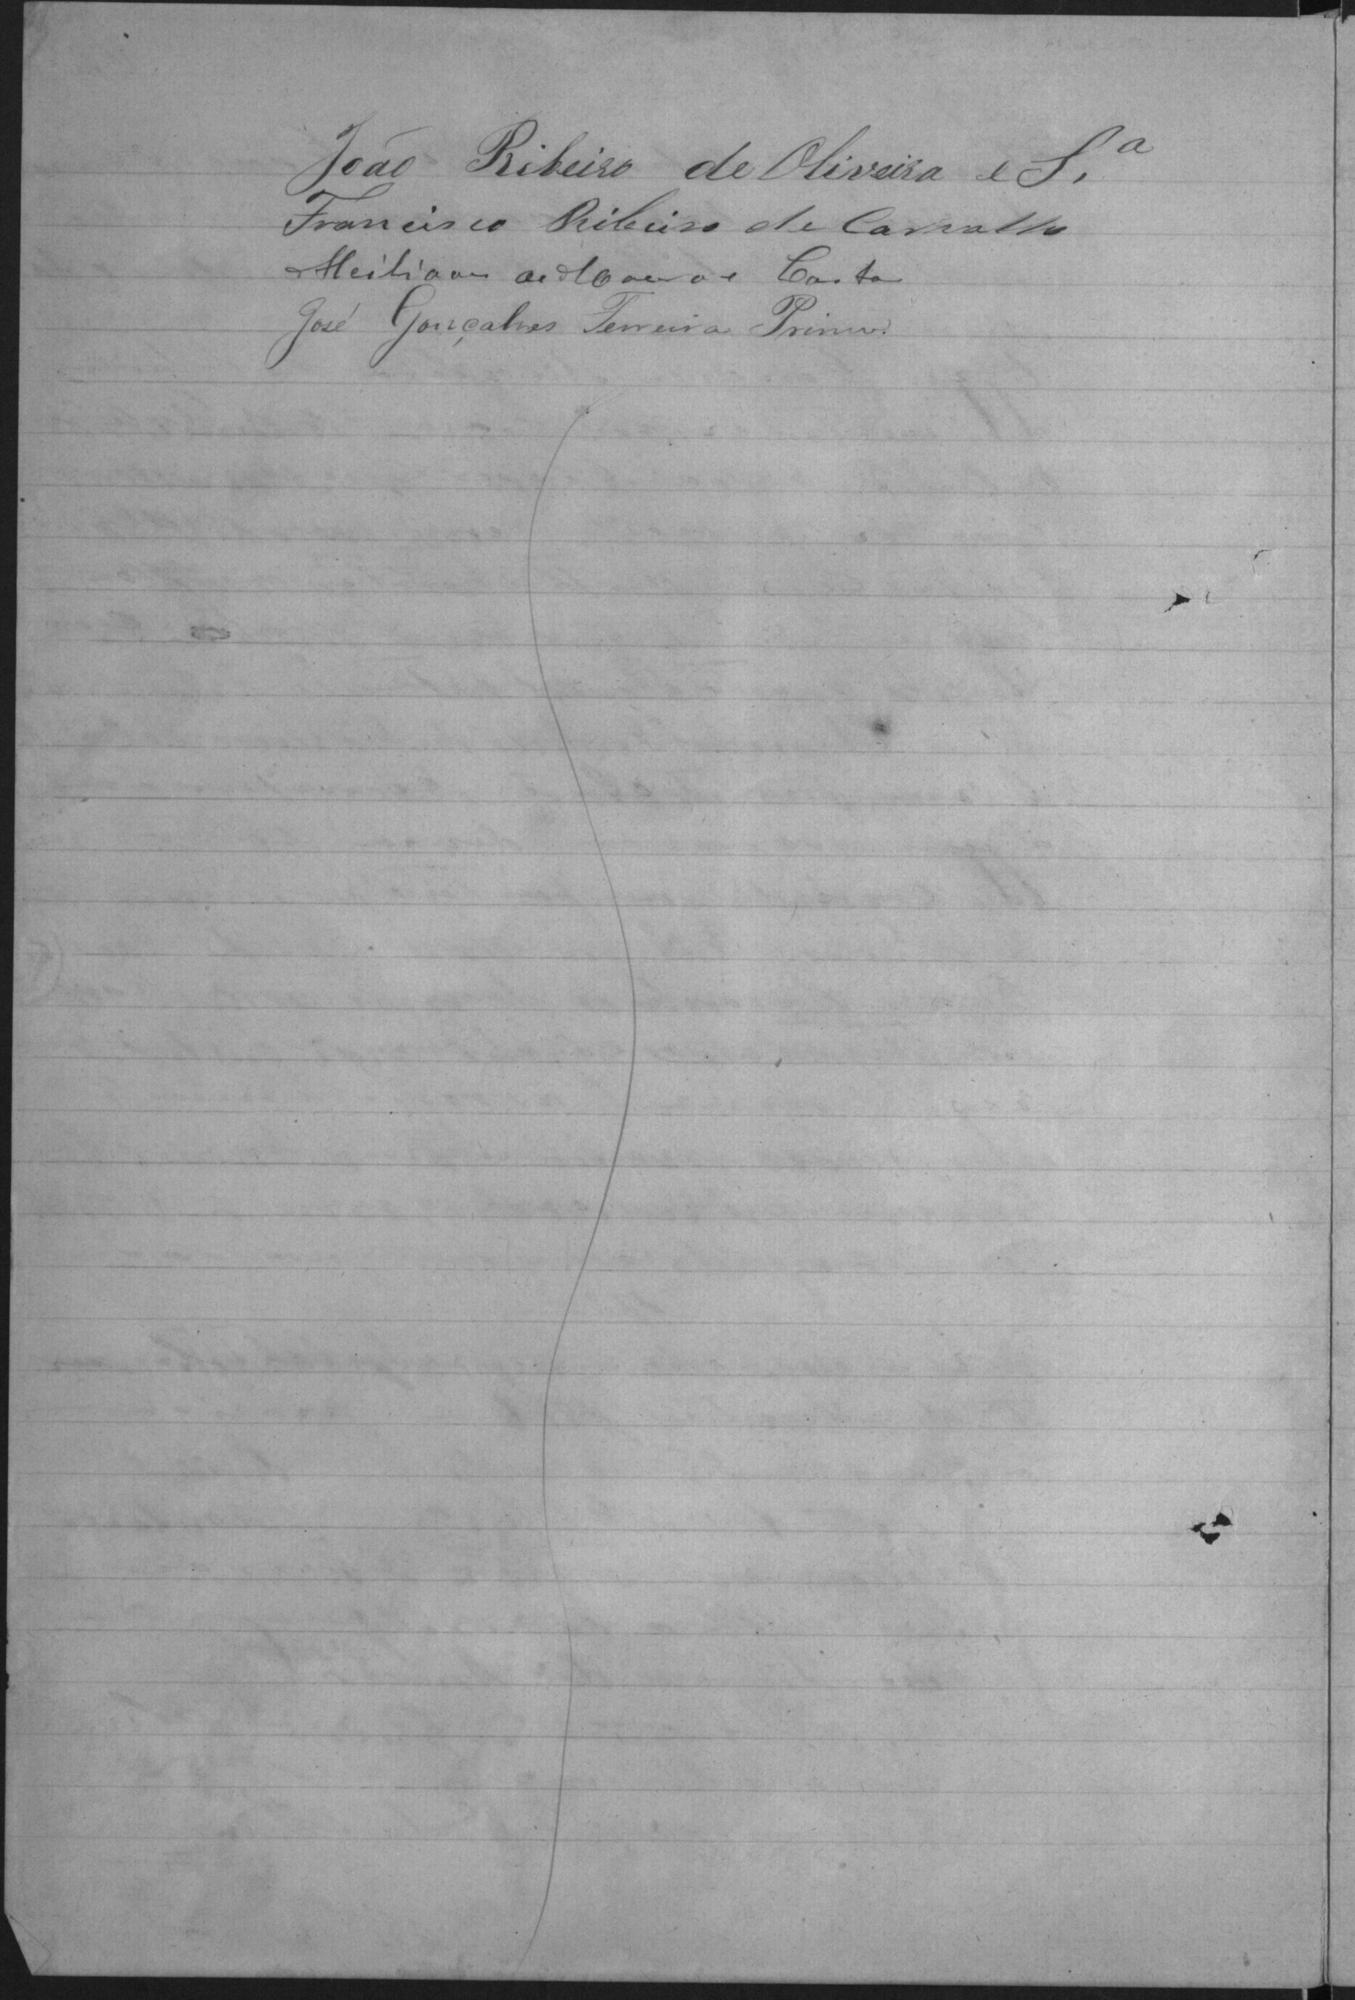 João Ribeiro de Oliveira e S.ª
Francisco Ribeiro de Carvalho
Costa
José Gonçalves Ferreira Primo